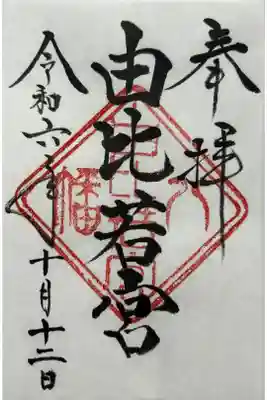 奉拝
由比若宮
令和六年
十月十二日